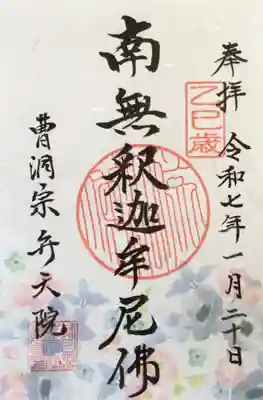 奉拝 令和七年一月二十日
乙巳歳
南無釈迦牟尼佛
曹洞宗弁天院